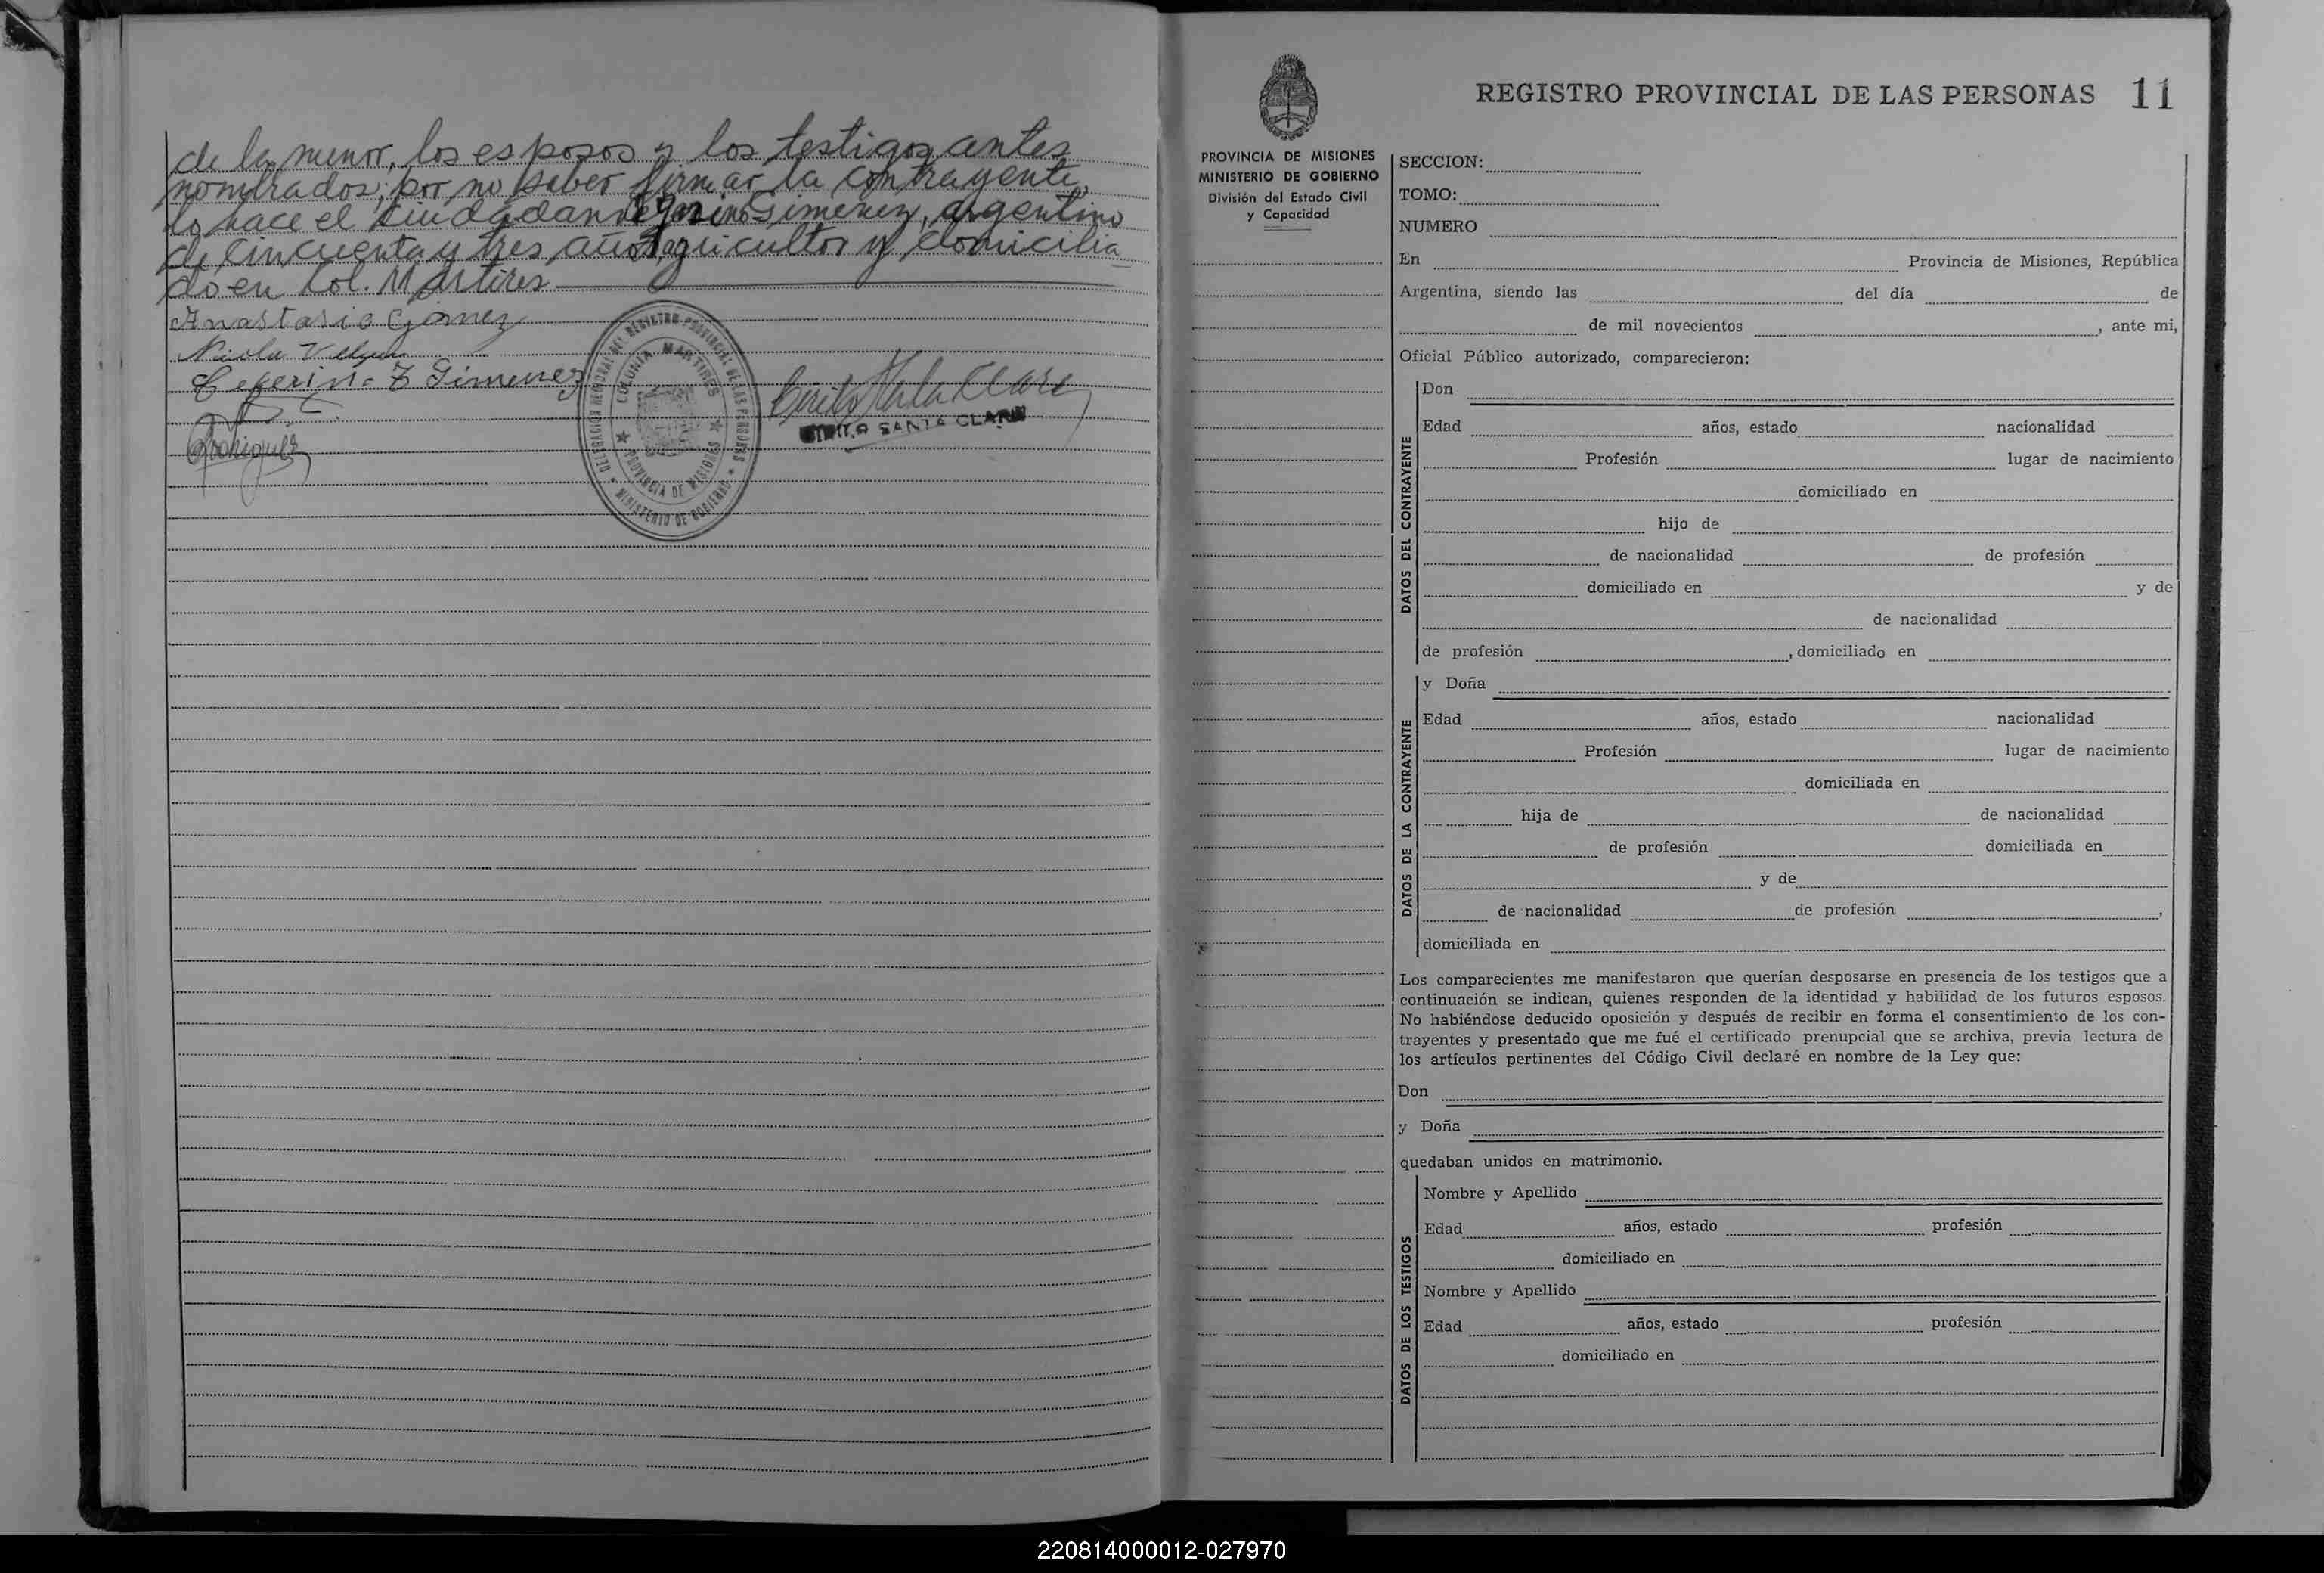 de la menor, los esposos y los testigos antes
nombrados; por no saber firmar la contrayente,
lo hace el ciudadano Gimenez, argentino
de cincuenta y tres años, agricultor y domicilia
do en Col. Martires
Anastasio Gomez
Ceferino Z Gimenez
Rodriguez
Cirilo Santa Clara
SANTA CLARA
DELEGACION REGIONAL DEL REGISTRO PROVINCIAL DE LAS PERSONAS
MINISTERIO DE GOBIERNO
COLONIA MARTIRES
PROVINCIA DE MISIONES
REGISTRO PROVINCIAL DE LAS PERSONAS 11
PROVINCIA DE MISIONES
MINISTERIO DE GOBIERNO
División del Estado Civil
y Capacidad
SECCION:
TOMO:
NUMERO
En Provincia de Misiones, República
Argentina, siendo las del día de
de mil novecientos , ante mi,
Oficial Público autorizado, comparecieron:
DATOS DEL CONTRAYENTE
Don
Edad años, estado nacionalidad
Profesión lugar de nacimiento
domiciliado en
hijo de
de nacionalidad de profesión
domiciliado en y de
de nacionalidad
de profesión , domiciliado en
DATOS DE LA CONTRAYENTE
y Doña
Edad años, estado nacionalidad
Profesión lugar de nacimiento
domiciliada en
hija de de nacionalidad
de profesión domiciliada en
y de
de nacionalidad de profesión ,
domiciliada en
Los comparecientes me manifestaron que querían desposarse en presencia de los testigos que a
continuación se indican, quienes responden de la identidad y habilidad de los futuros esposos.
No habiéndose deducido oposición y después de recibir en forma el consentimiento de los con-
trayentes y presentado que me fué el certificado prenupcial que se archiva, previa lectura de
los artículos pertinentes del Código Civil declaré en nombre de la Ley que:
Don
y Doña
quedaban unidos en matrimonio.
DATOS DE LOS TESTIGOS
Nombre y Apellido
Edad años, estado profesión
domiciliado en
Nombre y Apellido
Edad años, estado profesión
domiciliado en
220814000012-027970